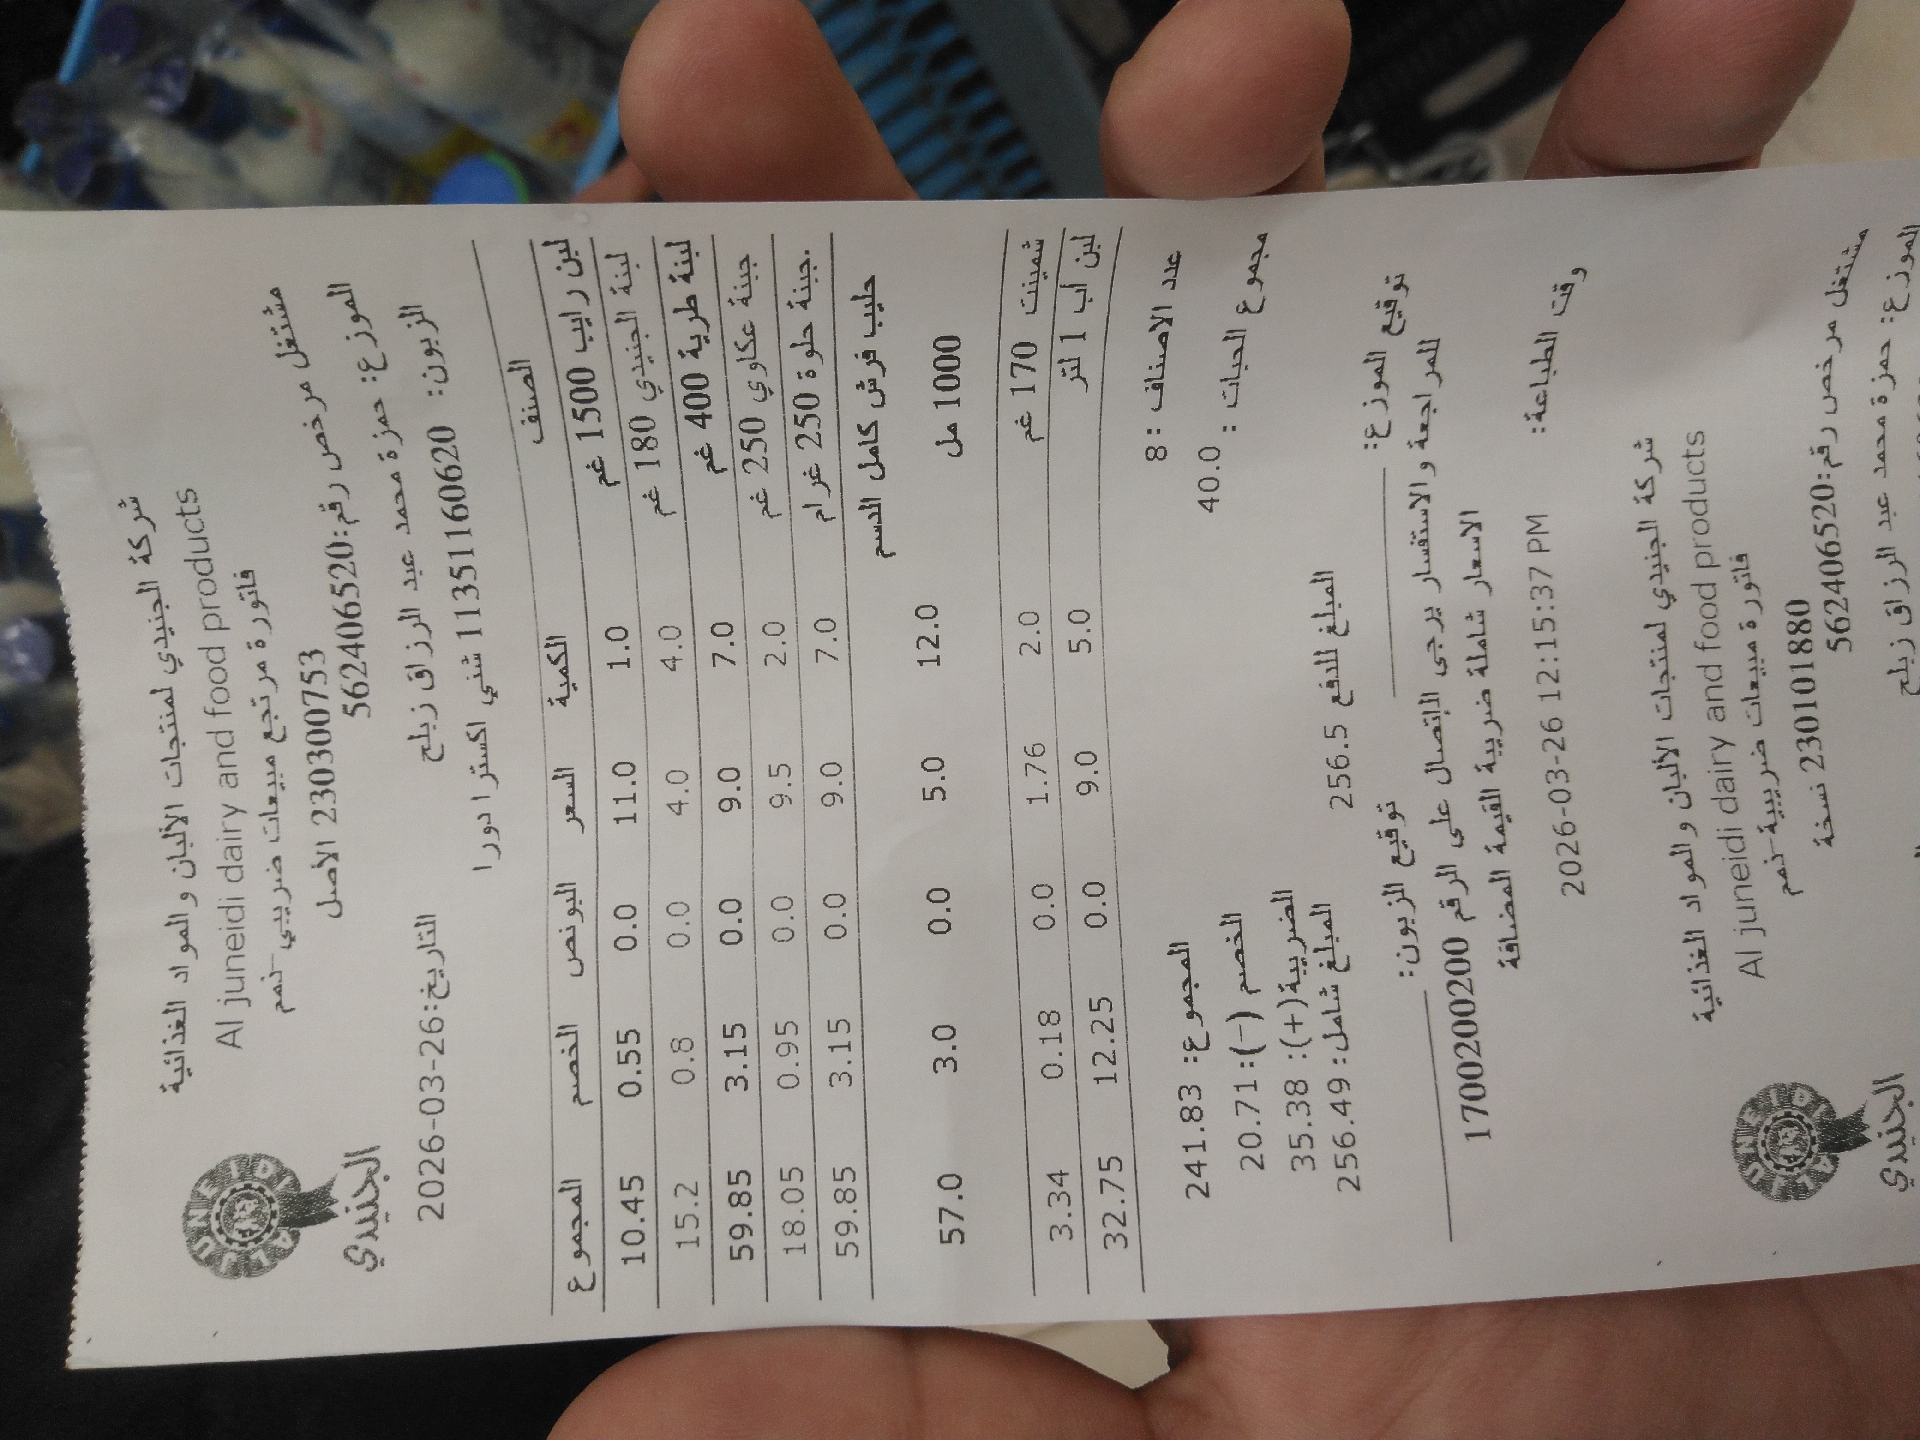 شركة الجنيدي لمنتجات الألبان والمواد الغذائية
Al juneidi dairy and food products
فاتورة مرتجع مبيعات ضريبي-نمم
2303000753 الأصل
مشتغل مرخص رقم:562406520
الموزع: حمزة محمد عبد الرزاق زبلح
AL JUNEIDI
الجنيدي
التاريخ:26-03-2026
الزبون: 11351160620 شني اكسترا دورا
الصنف الكمية السعر البونص الخصم المجموع
لبن رايب 1500 غم 1.0 11.0 0.0 0.55 10.45
لبنة الجنيدي 180 غم 4.0 4.0 0.0 0.8 15.2
لبنة طرية 400 غم 7.0 9.0 0.0 3.15 59.85
جبنة عكاوي 250 غم 2.0 9.5 0.0 0.95 18.05
جبنة حلوة 250 غرام. 7.0 9.0 0.0 3.15 59.85
حليب فرش كامل الدسم
1000 مل 12.0 5.0 0.0 3.0 57.0
شمينت 170 غم 2.0 1.76 0.0 0.18 3.34
لبن اب 1 لتر 5.0 9.0 0.0 12.25 32.75
عدد الاصناف : 8 المجموع: 241.83
مجموع الحبات : 40.0 الخصم (-): 20.71
الضريبة(+): 35.38
المبلغ للدفع 256.5 المبلغ شامل: 256.49
توقيع الموزع: توقيع الزبون:
للمراجعة والاستفسار يرجى الإتصال على الرقم 1700200200
الاسعار شاملة ضريبة القيمة المضافة
وقت الطباعة: 2026-03-26 12:15:37 PM
شركة الجنيدي لمنتجات الألبان والمواد الغذائية
Al juneidi dairy and food products
فاتورة مبيعات ضريبية-نمم
230101880 نسخة
مشتغل مرخص رقم:562406520
الموزع: حمزة محمد عبد الرزاق زبلح
AL JUNEIDI
الجنيدي